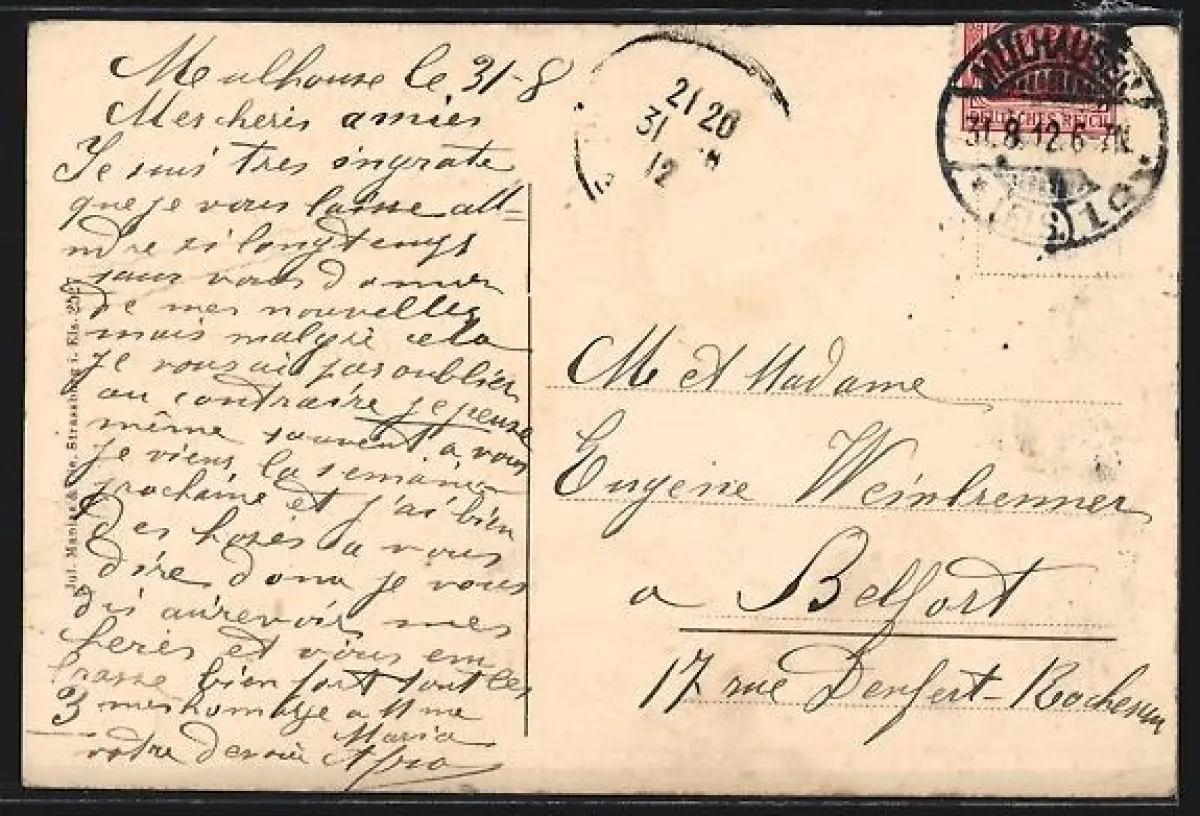 Mulhouse le 31-8
Mes cheris amies
Je suis tres ingrate
que je vous laisse att=
ndre si longtemps
sans vous donner
de mes nouvelles
mais malgré cela
je vous ai pas oublier
au contraire je pense
même souvent a vous
je viens la semaine
prochaine et j'ai bien
des hoses a vous
dire donc je vous
dis aurevoir mes
heries et vous em
brasse bien fort tout les
3 mes homage a Mme
Maria
votre
Jul. Manias & Cie. Strassburg i. Els.
21 20
31 8
12
MÜLHAUSEN
DEUTSCHES REICH
31.8.12.6-7N.
(ELS.) 1
M et Madame
Eugène Weinbrenner
a Belfort
17 rue Denfert-Rochereau